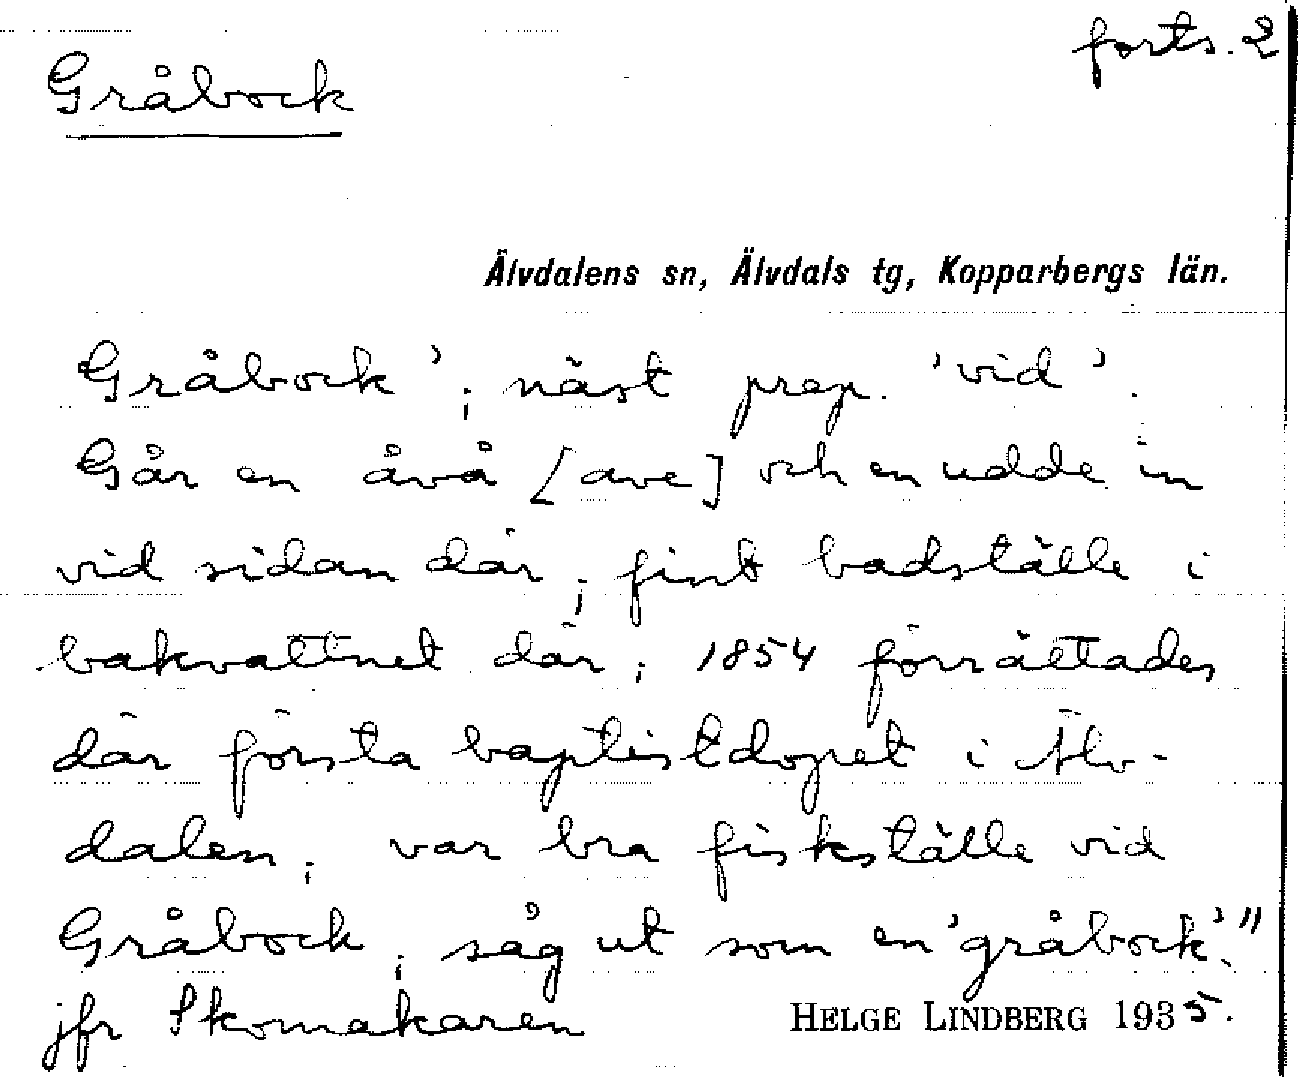 forts. 2
Gråbock
Älvdalens sn, Älvdals tg, Kopparbergs län.
Gråbock'; näst prep. 'vid'.
Går en åvå [ave] och en udde in
vid sidan där; fint badställe i
bakvattnet där; 1854 förrättades
där första baptistdopet i Älv-
dalen; var bra fiskställe vid
Gråbock; såg ut som en 'gråbock'."
jfr Skomakaren HELGE LINDBERG 1935.